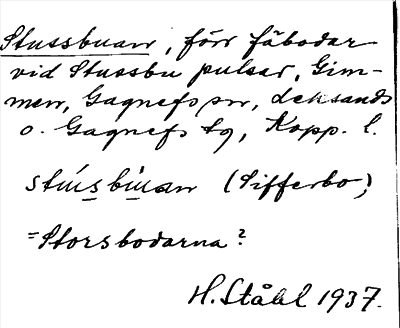 Stussbuan, förr fäbodar
vid Stussbu pulsar, Gim-
men, Gagnefs sn, Leksands
o. Gagnefs tg, Kopp. l.
stúsbùan (Sifferbo)
= Storsbodarna?
H. Ståhl 1937.